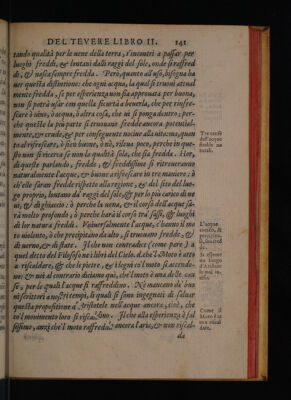 DEL TEVERE LIBRO II. 141
tando qualità per le uene della terra, s'incontri a passar per
luoghi freddi, & lontani dalli raggi del sole, onde si raffred
di, & nasca sempre fredda. Però, quanto all'uso, bisogna ha
uer questa distintione: che ogni acqua, la qual si truoui attual
mente fredda, se per esperienza non sia approuata per buona,
non si potrà usar con quella sicurtà a beuerla, che per rinfre-
scare ò uino, ò acqua, ò altra cosa, che ui si ponga dentro; per-
che quelle la più parte si truouano fredde ancora potential-
mente, & crude, & per conseguente nociue alla uita: ma, quan
to al rifrescare, ò sien buone, ò nò, rileua poco, perche in que-
sto non si ricerca se non la qualità sola, che sia fredda. Hor,
di quelle parlando, fredde, & freddissime si ritroueranno
naturalmente l'acque, & buone a rifrescare in tre maniere: ò
ch'elle saran fredde rispetto alla regione, & del sito del luo-
go proprio, lontano da' raggi del sole, & per lo più carico di ne
ui, & di ghiaccio: ò perche la uena, & il corso dell'acque sa-
rà molto profondo, ò perche harà il corso tra sassi, & luoghi
di lor natura freddi. Vniuersalmente l'acque, c'hanno il mo
to uiolento, ò che precipitano d'alto, si truouano fredde, &
di uerno, & di state. Il che non contradice (come pare) a
quel detto del Filosofo ne i libri del Cielo, che'l Moto è atto
a riscaldare, & che le pietre, & i legni col moto si accendo-
no: & noi al contrario diciamo quì, che'l moto è una delle cau
se, per le quali l'acque si raffreddino. Nè mancano de' buo
ni scrittori a nostri tempi, li quali si sono ingegnati di saluar
questa propositione d'Aristotele nell'acque ancora, cioè, che
col mouimento loro si riscaldino. Il che alla esperienza è fal
sissimo, anzi che'l moto raffredda ancora l'aria, & non riscal-
da
Tre cause
dell'acque
fredde na
turali.
L'acque
correnti,
& precipito-
se, son fred
de.
Come il
Moto